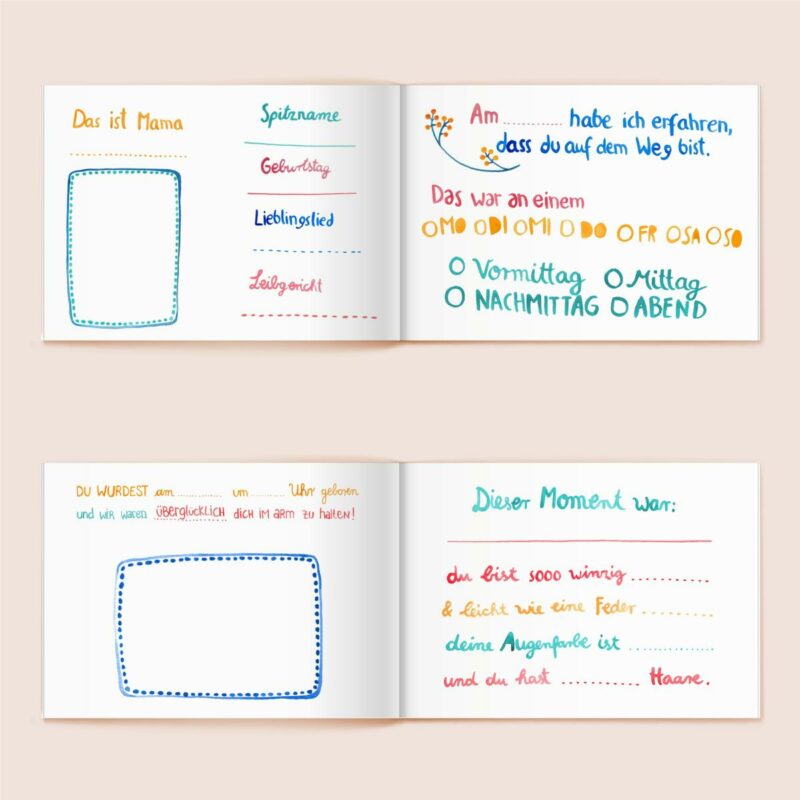 Das ist Mama
Spitzname
Geburtstag
Lieblingslied
Leibgericht
Am ............ habe ich erfahren,
dass du auf dem Weg bist.
Das war an einem
O MO O DI O MI O DO O FR O SA O SO
O Vormittag O Mittag
O NACHMITTAG O ABEND
DU WURDEST am ............ um ......... Uhr geboren
und wir waren überglücklich dich im arm zu halten!
Dieser Moment war:
du bist sooo winzig ............
& leicht wie eine Feder ..........
deine Augenfarbe ist ............
und du hast ............ Haare.